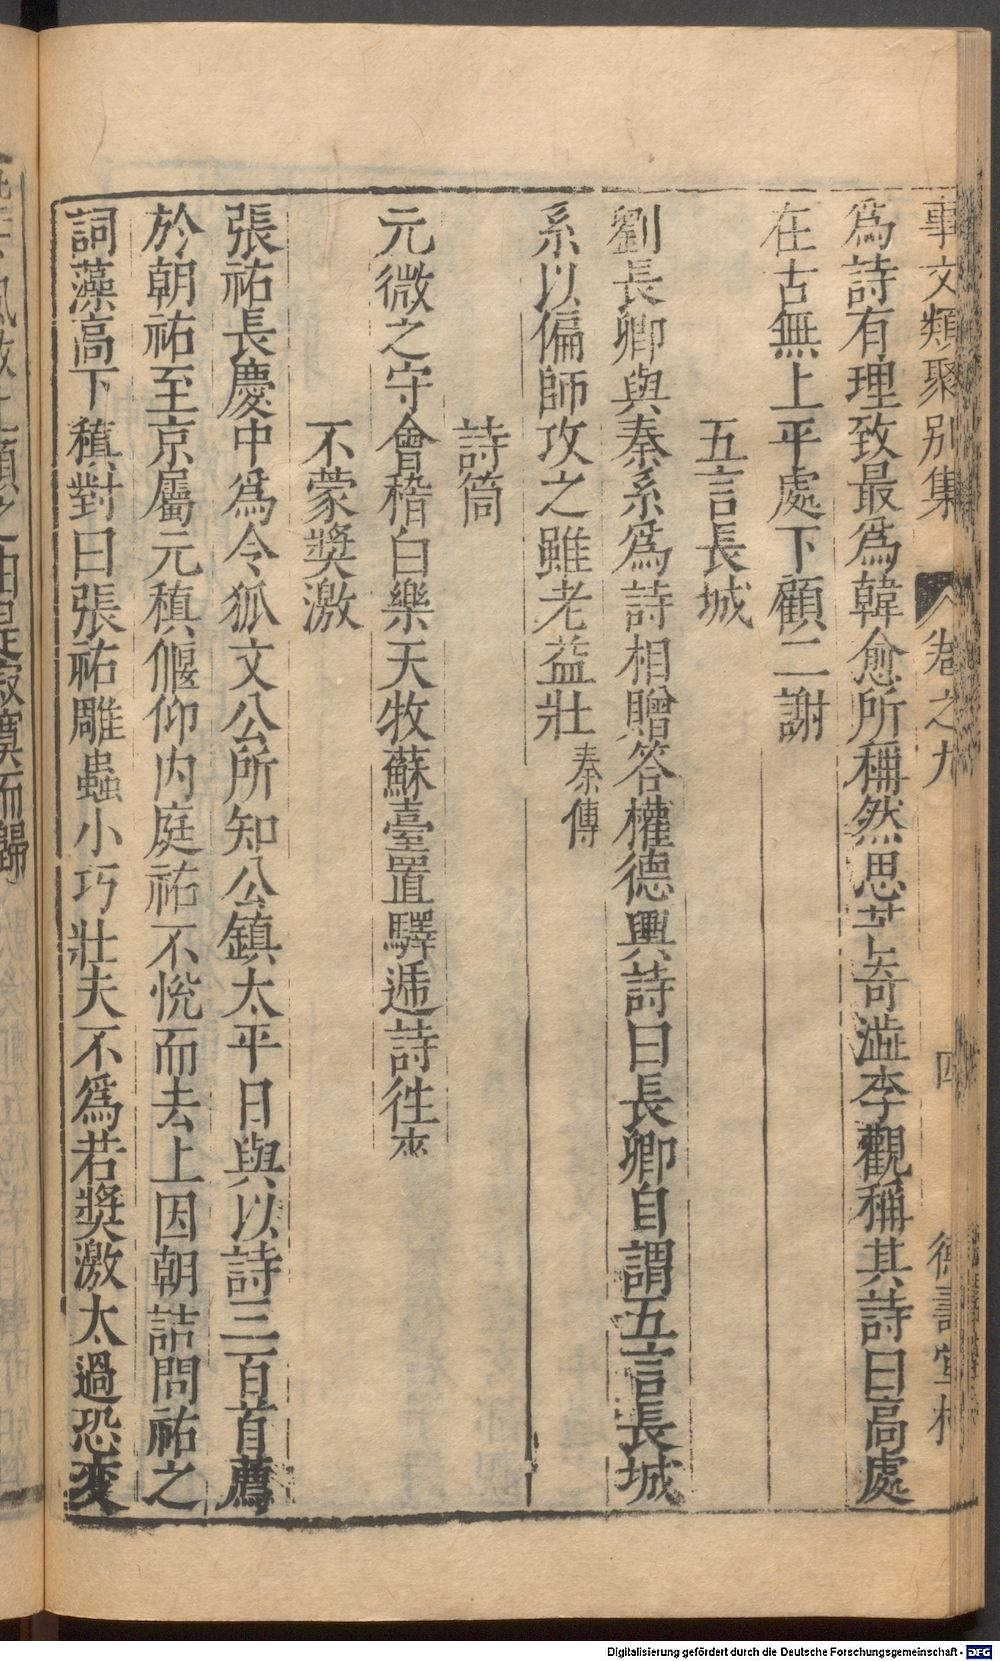 事文類聚別集 卷之九 四 德壽堂
爲詩有理致最爲韓愈所稱然思苦奇澁李觀稱其詩曰高處
在古無上平處下顧二謝
五言長城
劉長卿與秦系爲詩相贈答權德輿詩曰長卿自謂五言長城
系以偏師攻之雖老益壯秦傳
詩筒
元微之守會稽白樂天牧蘇臺置驛遞詩徃來
不蒙獎激
張祐長慶中爲令狐文公所知公鎮太平日與以詩三百首薦
於朝祐至京屬元稹偃仰內庭祐不悅而去上因朝詰問祐之
詞藻高下稹對曰張祐雕蟲小巧壯夫不爲若獎激太過恐変
寂寞而歸
Digitalisierung gefördert durch die Deutsche Forschungsgemeinschaft - DFG